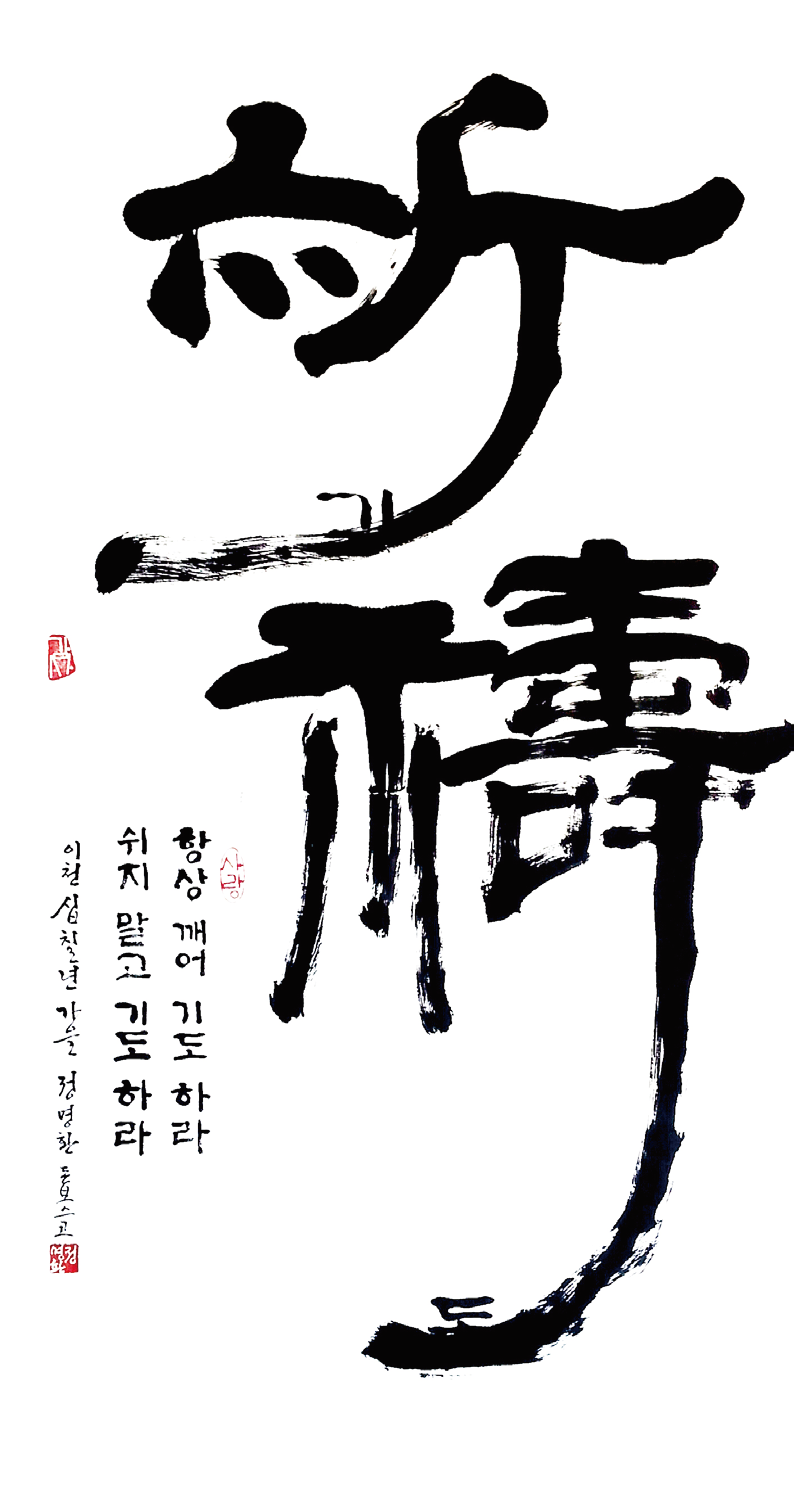 祈
기
禱
도
사랑
항상 깨어 기도 하라
쉬지 말고 기도 하라
이천 십칠년 가을 정명환 돈보스고
정명환